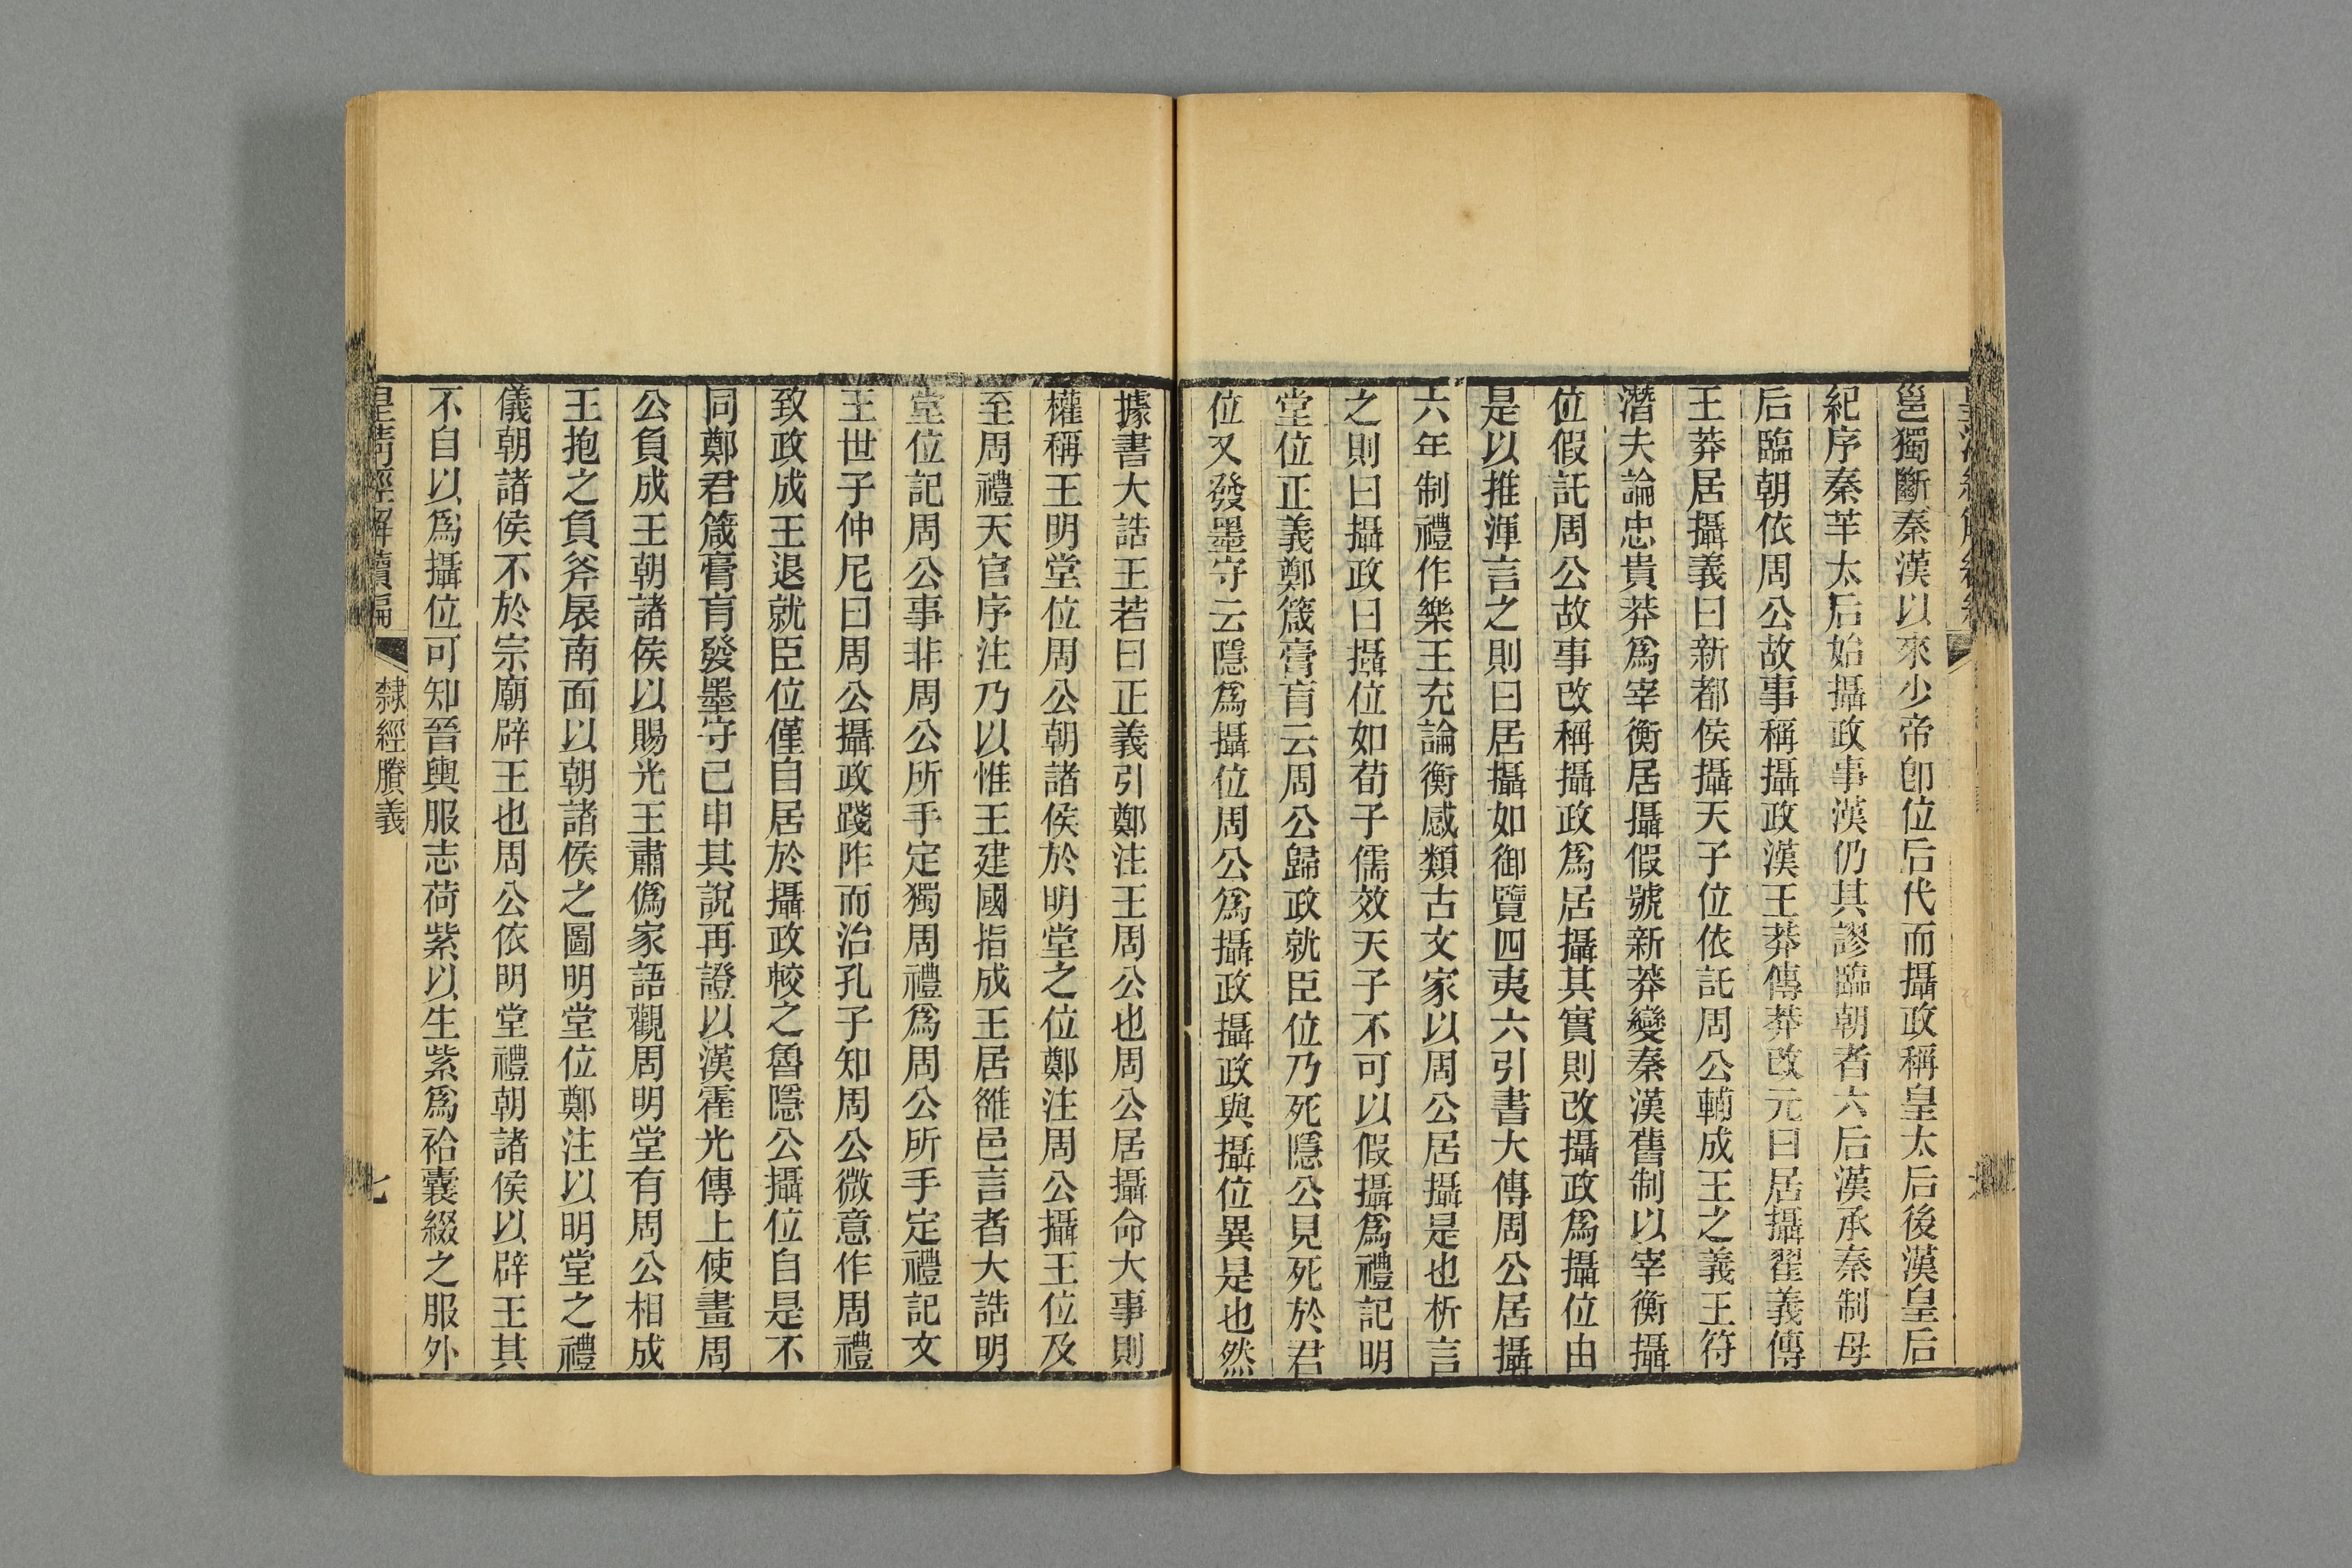 邕獨斷秦漢以來少帝卽位后代而攝政稱皇太后後漢皇后
紀序秦芉太后始攝政事漢仍其謬臨朝者六后漢承秦制母
后臨朝依周公故事稱攝政漢王莽傳莽改元曰居攝翟義傳
王莽居攝義曰新都侯攝天子位依託周公輔成王之義王符
潛夫論忠貴莽爲宰衡居攝假號新莽變秦漢舊制以宰衡攝
位假託周公故事改稱攝政爲居攝其實則改攝政爲攝位由
是以推渾言之則曰居攝如御覽四夷六引書大傳周公居攝
六年制禮作樂王充論衡感類古文家以周公居攝是也析言
之則曰攝政曰攝位如荀子儒效天子不可以假攝爲禮記明
堂位正義鄭箴膏肓云周公歸政就臣位乃死隱公見死於君
位又發墨守云隱爲攝位周公爲攝政攝政與攝位異是也然
據書大誥王若曰正義引鄭注王周公也周公居攝命大事則
權稱王明堂位周公朝諸侯於明堂之位鄭注周公攝王位及
至周禮天官序注乃以惟王建國指成王居雒邑言者大誥明
堂位記周公事非周公所手定獨周禮爲周公所手定禮記文
王世子仲尼曰周公攝政踐阼而治孔子知周公微意作周禮
致政成王退就臣位僅自居於攝政較之魯隱公攝位自是不
同鄭君箴膏肓發墨守已申其說再證以漢霍光傳上使畫周
公負成王朝諸侯以賜光王肅僞家語觀周明堂有周公相成
王抱之負斧扆南面以朝諸侯之圖明堂位鄭注以明堂之禮
儀朝諸侯不於宗廟辟王也周公依明堂禮朝諸侯以辟王其
不自以爲攝位可知晉輿服志荷紫以生紫爲袷囊綴之服外
皇清經解續編
隸經賸義
七